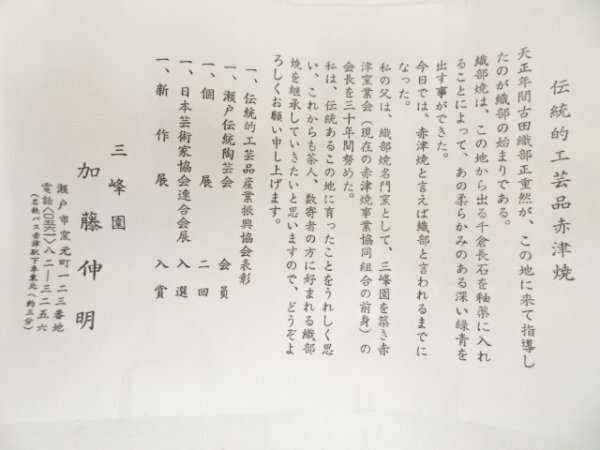 伝統的工芸品赤津焼
天正年間古田織部正重然が、この地に来て指導し
たのが織部の始まりである。
織部焼は、この地から出る千倉長石を釉薬に入れ
ることによって、あの柔らかみのある深い緑青を
出す事ができた。
今日では、赤津焼と言えば織部と言われるまでに
なった。
私の父は、織部焼名門窯として、三峰園を築き赤
津窯業会（現在の赤津焼事業協同組合の前身）の
会長を三十年間努めた。
私は、伝統あるこの地に育ったことをうれしく思
い、これからも茶人、数寄者の方に好まれる織部
焼を継承していきたいと思いますので、どうぞよ
ろしくお願い申し上げます。
一、伝統的工芸品産業振興協会表彰
一、瀬戸伝統陶芸会 会員
一、個展 二回
一、日本芸術家協会連合会展 入選
一、新作展 入賞
三峰園
加藤伸明
瀬戸市窯元町一二三番地
電話〈〇五六一〉八二―三二五六
（名鉄バス赤津駅下車東北へ約三分）